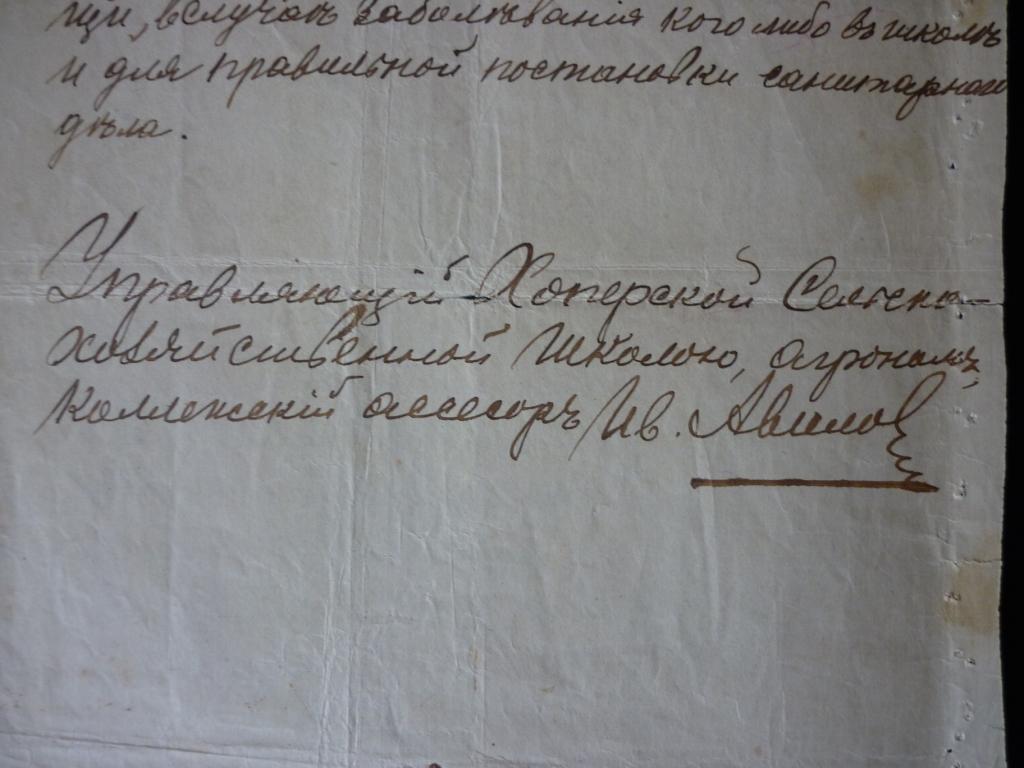 щи, вслучаѣ заболѣванія кого либо въ школѣ
и для правильной постановки санитарнаго
дѣла.
Управляющій Хоперской Сельско-
хозяйственной Школою, агрономъ,
Коллежскій ассесоръ Ив. Авиловъ